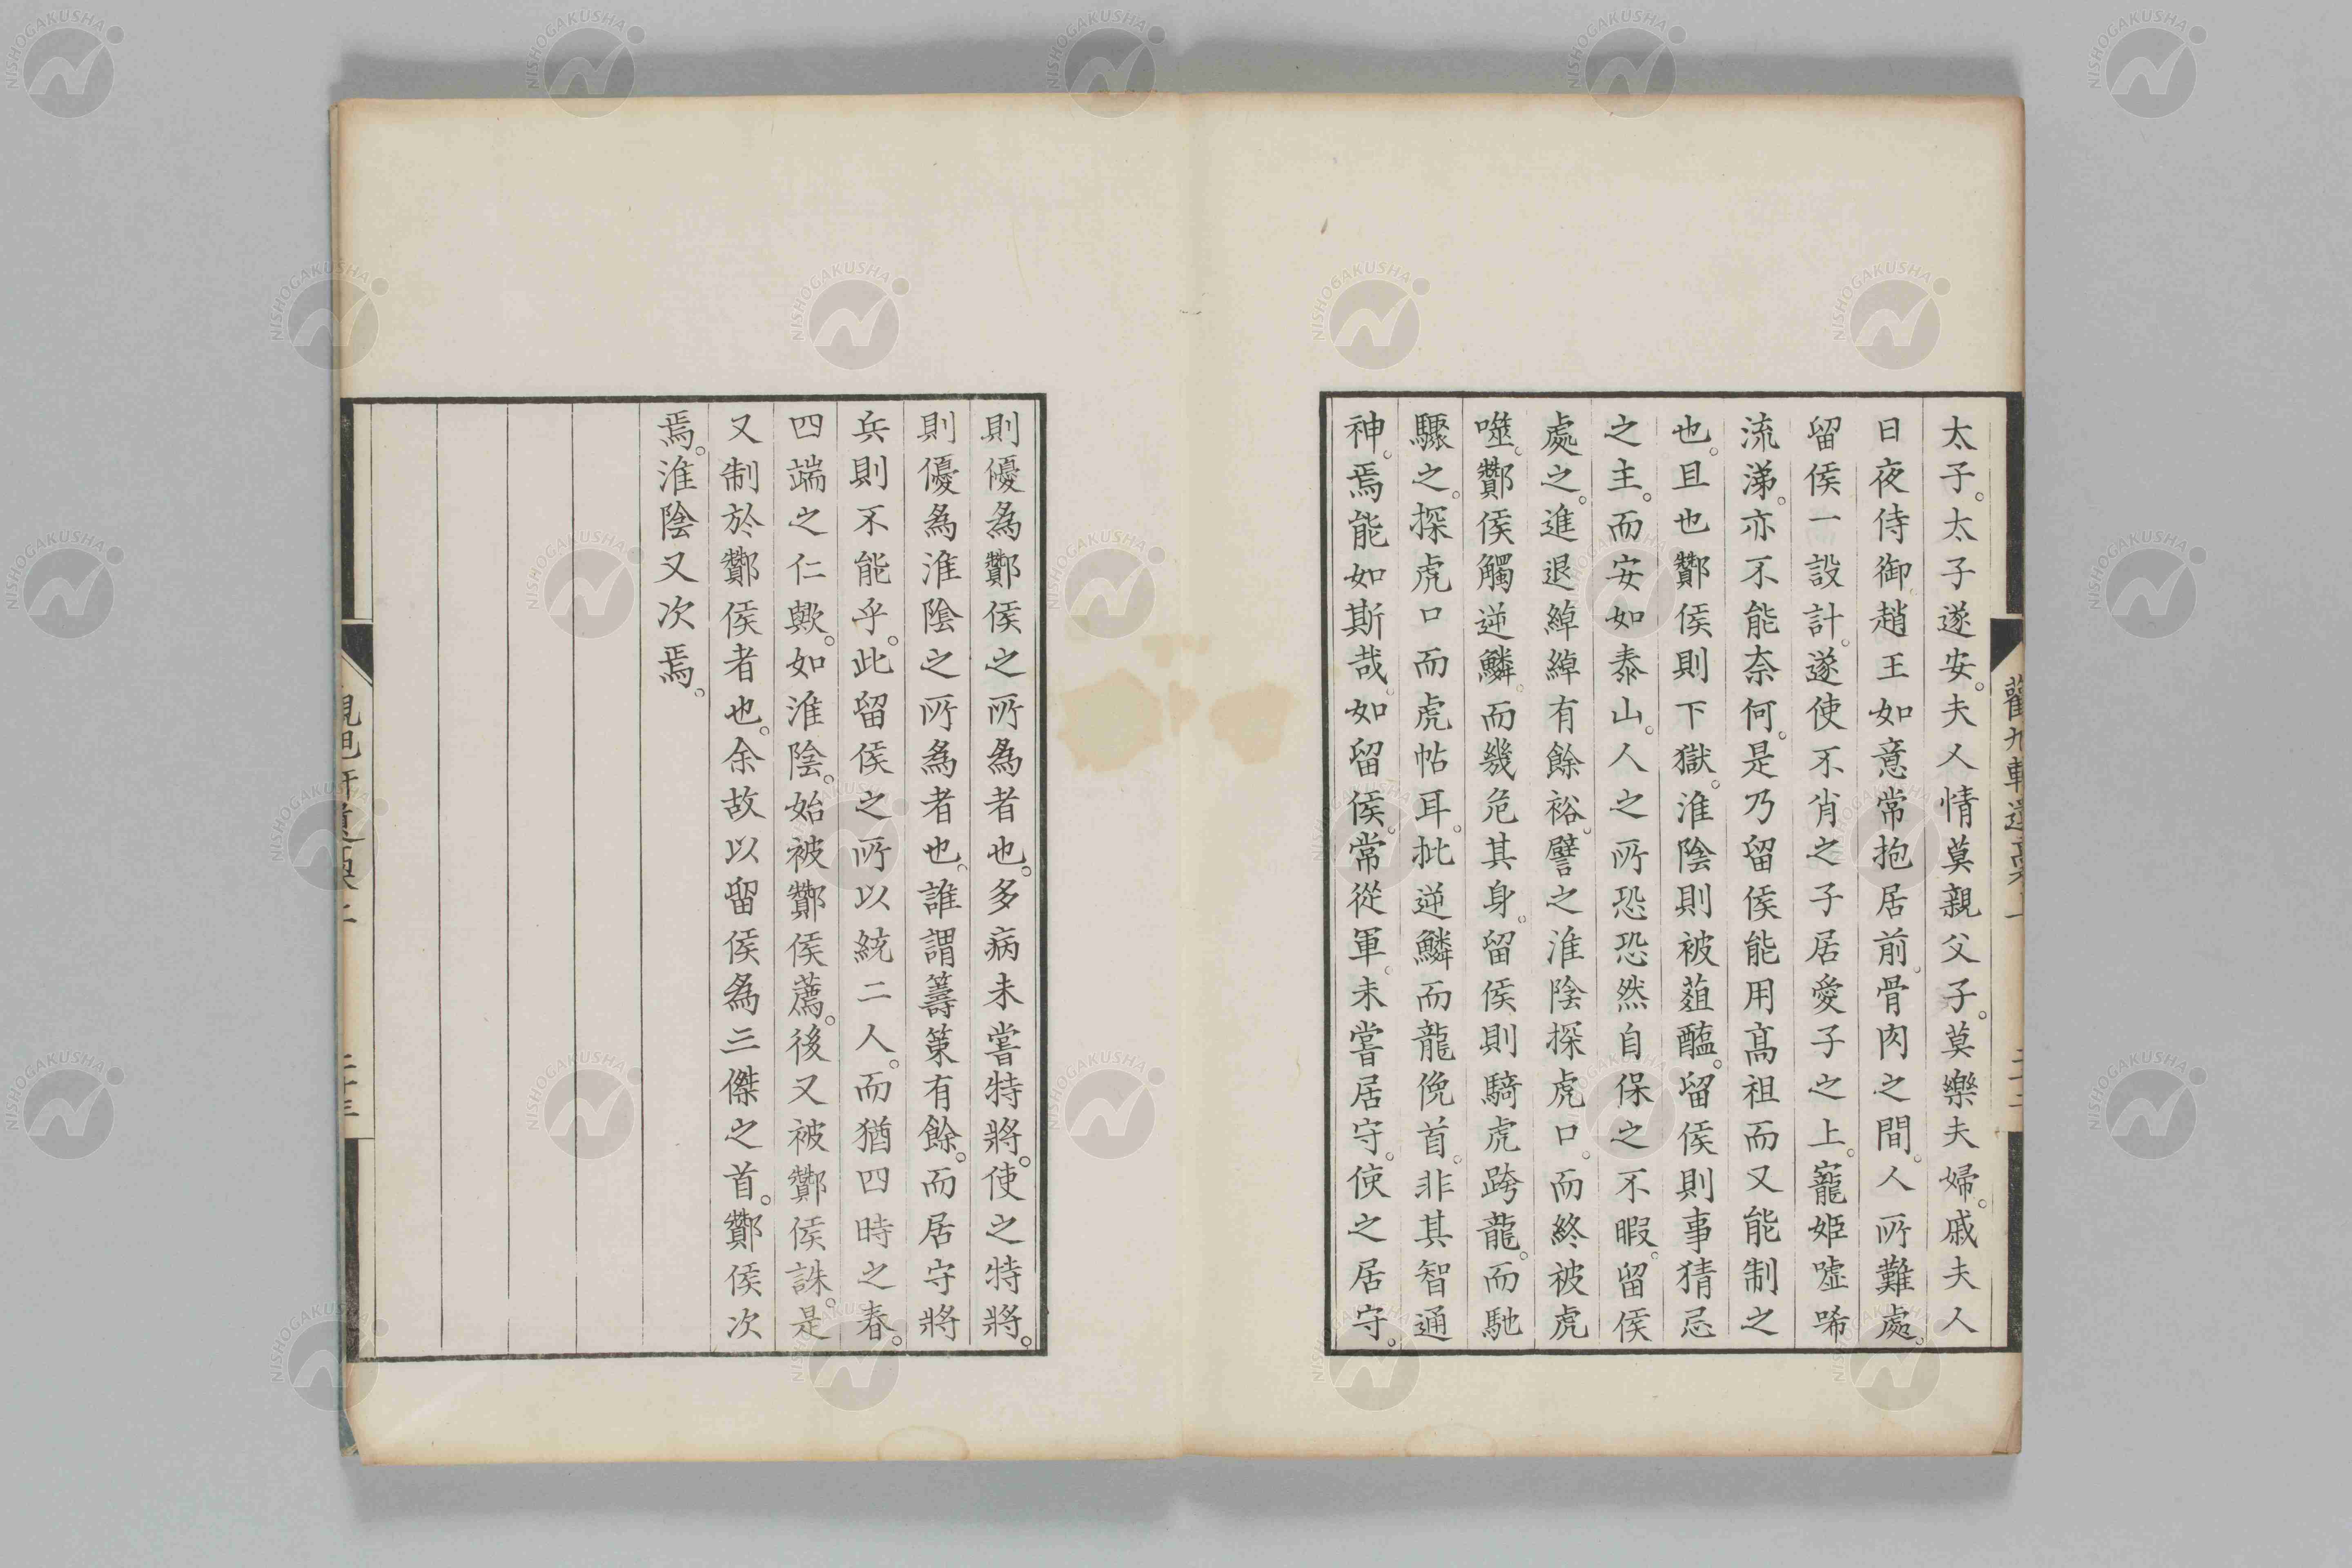 太子。太子遂安。夫人情莫親父子。莫樂夫婦。戚夫人
日夜侍御。趙王如意常抱居前。骨肉之間。人所難處。
留侯一設計。遂使不肖之子居愛子之上。寵姬噓唏
流涕。亦不能奈何。是乃留侯能用高祖而又能制之
也。且也酇侯則下獄。淮陰則被葅醢。留侯則事猜忌
之主。而安如泰山。人之所恐恐然自保之不暇。留侯
處之。進退綽綽有餘裕。譬之淮陰探虎口。而終被虎
噬。酇侯觸逆鱗。而幾危其身。留侯則騎虎跨龍。而馳
驟之。探虎口而虎帖耳。批逆鱗而龍俛首。非其智通
神。焉能如斯哉。如留侯。常從軍。未嘗居守。使之居守。
則優為酇侯之所為者也。多病未嘗特將。使之特將。
則優為淮陰之所為者也。誰謂籌策有餘。而居守將
兵則不能乎。此留侯之所以統二人。而猶四時之春。
四端之仁歟。如淮陰。始被酇侯薦。後又被酇侯誅。是
又制於酇侯者也。余故以留侯為三傑之首。酇侯次
焉。淮陰又次焉。
NISHOGAKUSHA